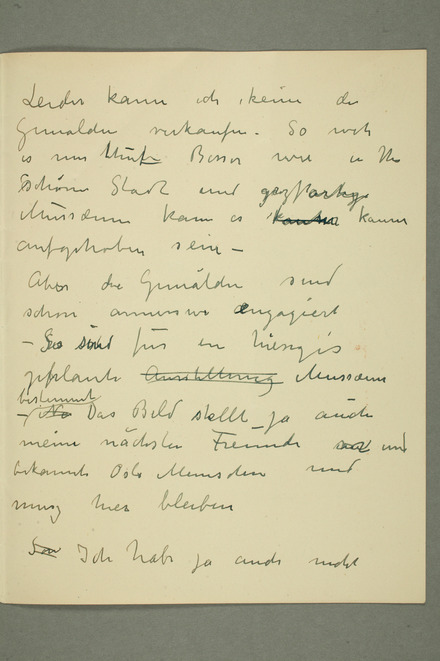 Leider kann ich keine der
Gemälde verkaufen. So weit
es
Besser wie in Ihr
schönen Stadt und
Museum kann es kaum
aufgehoben sein –
Aber die Gemälde sind
schon engagiert
– Sie sind für ein hiesigis
geplante Ausstellung Museum
bestemmt
– No Das Bild stellt ja auch
meine nächsten Freunde und
bekannte Oslo Menschen und
muss hier bleiben
Ich habe ja auch nicht